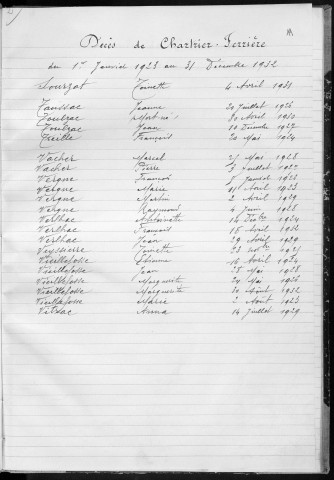 Décès de Chartrier-Ferrière
du 1er Janvier 1923 au 31 Décembre 1932
Sourzat Toinette 4 Avril 1931
Taussac Jeanne 20 Juillet 1926
Toulzac 30 Avril 1930
Toulzac Jean 10 Décembre 1927
Treille François 20 Mai 1924
Vacher Marcel 27 Mai 1928
Vacher Pierre 3 Juillet
Vergne François 8 Janvier 1923
Vergne Marie 11 Avril 1923
Vergne Martin 2 Avril 1929
Vergne Raymond 4 Juin
Verlhac Antoinette 14 1924
Verlhac François 18 Avril 1932
Verlhac Jean 29 Avril 1929
Veyssière Toinette 28
Vieillefosse Etienne 18 Avril 1924
Vieillefosse Jean 28 Mai 1928
Vieillefosse Marguerite 24 Mai 1926
Vieillefosse Marguerite 20 Août 1932
Vieillefosse Marie 2 Août 1923
Vitrac Anna 14 Juillet 1929